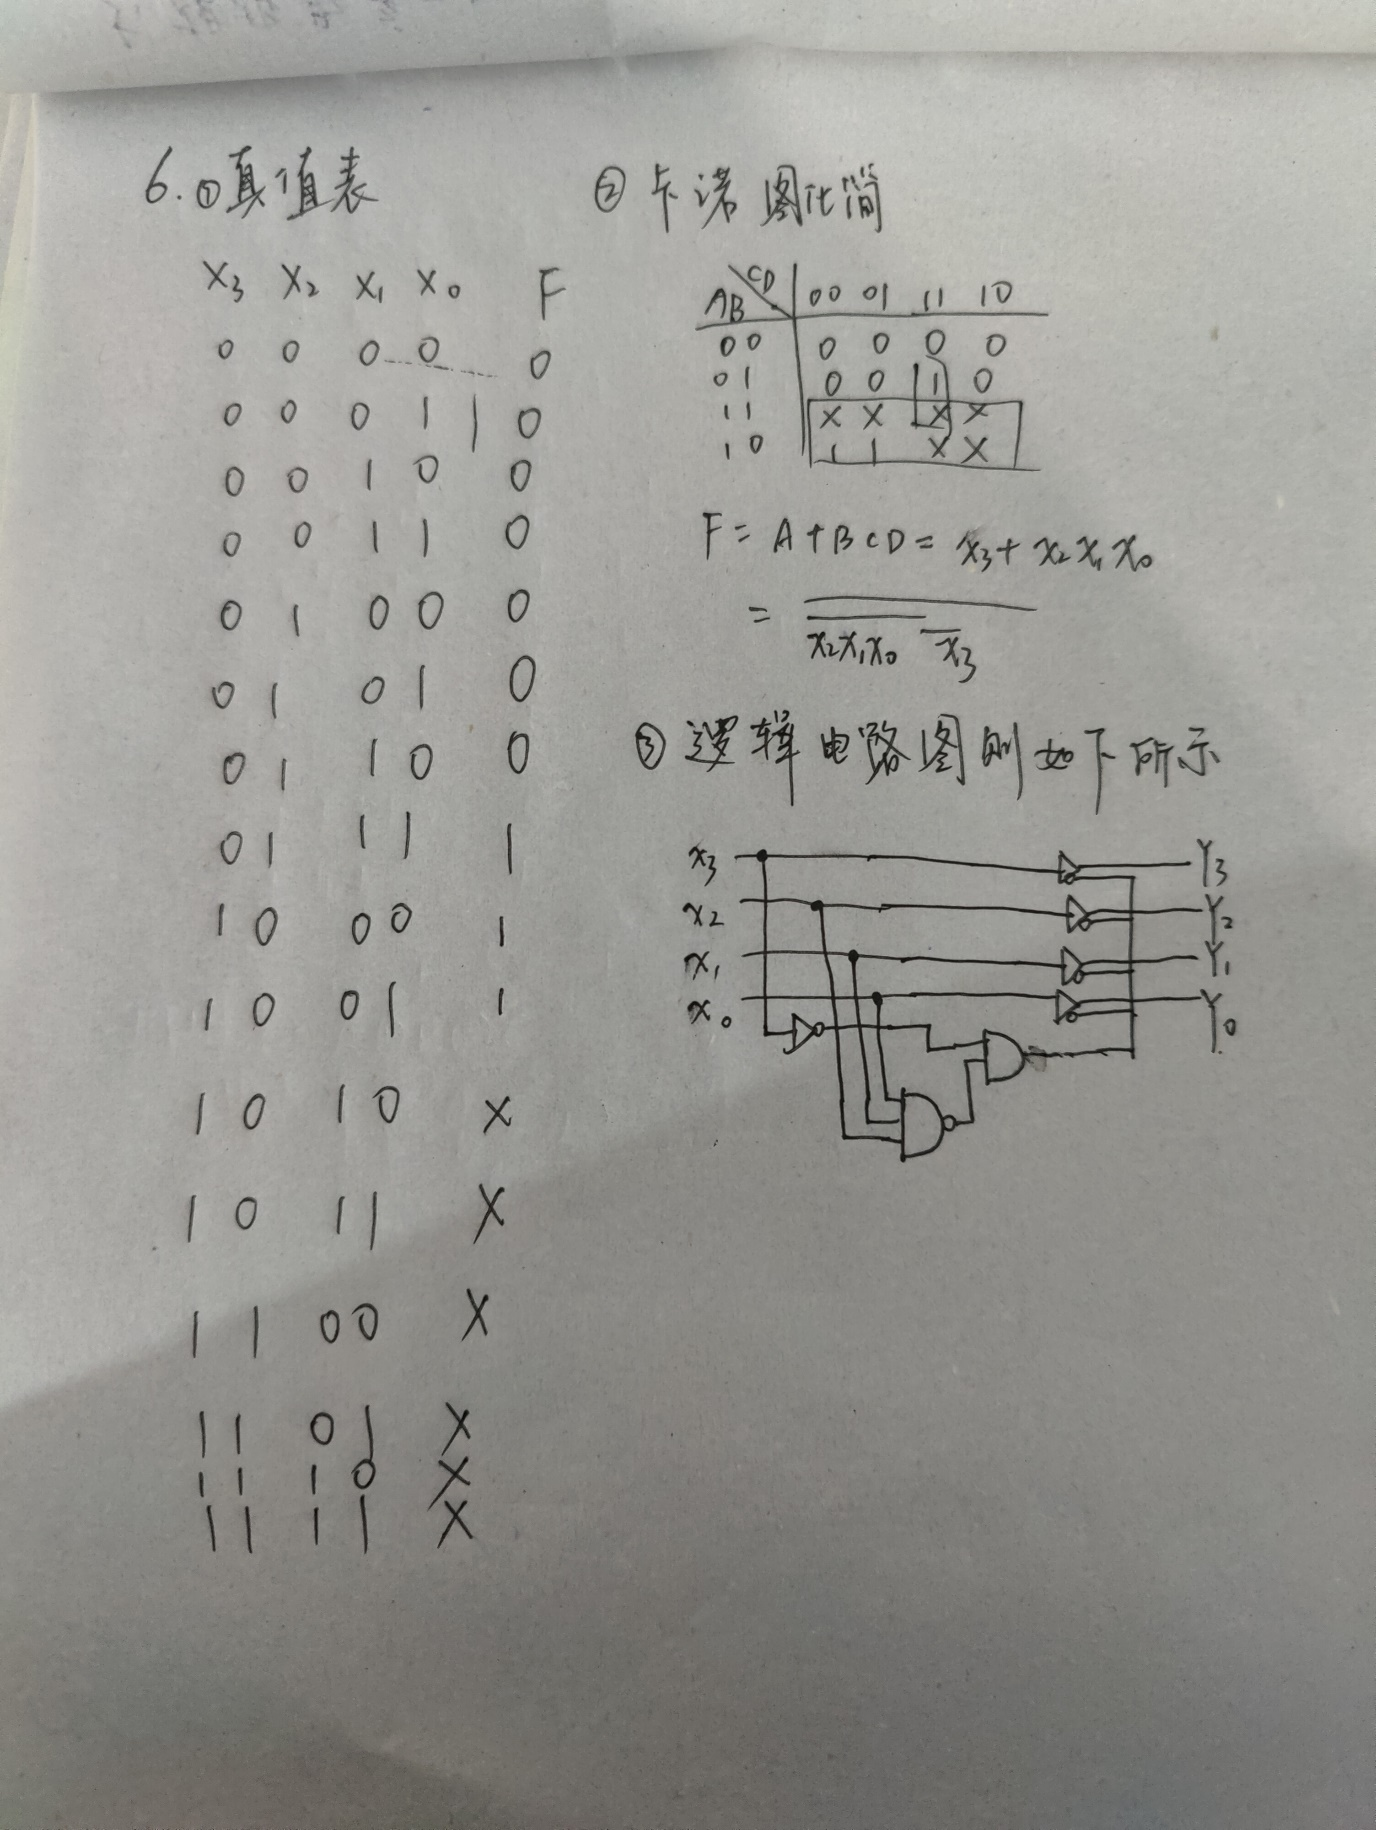 6.①真值表
X₃ X₂ X₁ X₀ F
0 0 0 0 0
0 0 0 1 0
0 0 1 0 0
0 0 1 1 0
0 1 0 0 0
0 1 0 1 0
0 1 1 0 0
0 1 1 1 1
1 0 0 0 1
1 0 0 1 1
1 0 1 0 X
1 0 1 1 X
1 1 0 0 X
1 1 0 1 X
1 1 1 0 X
1 1 1 1 X
②卡诺图化简
AB\CD 00 01 11 10
00 0 0 0 0
01 0 0 1 0
11 X X X X
10 1 1 X X
F = A+BCD = x₃+x₂x₁x₀
= \overline{\overline{x₂x₁x₀} \overline{x₃}}
③逻辑电路图则如下所示
x₃ Y₃
x₂ Y₂
x₁ Y₁
x₀ Y₀